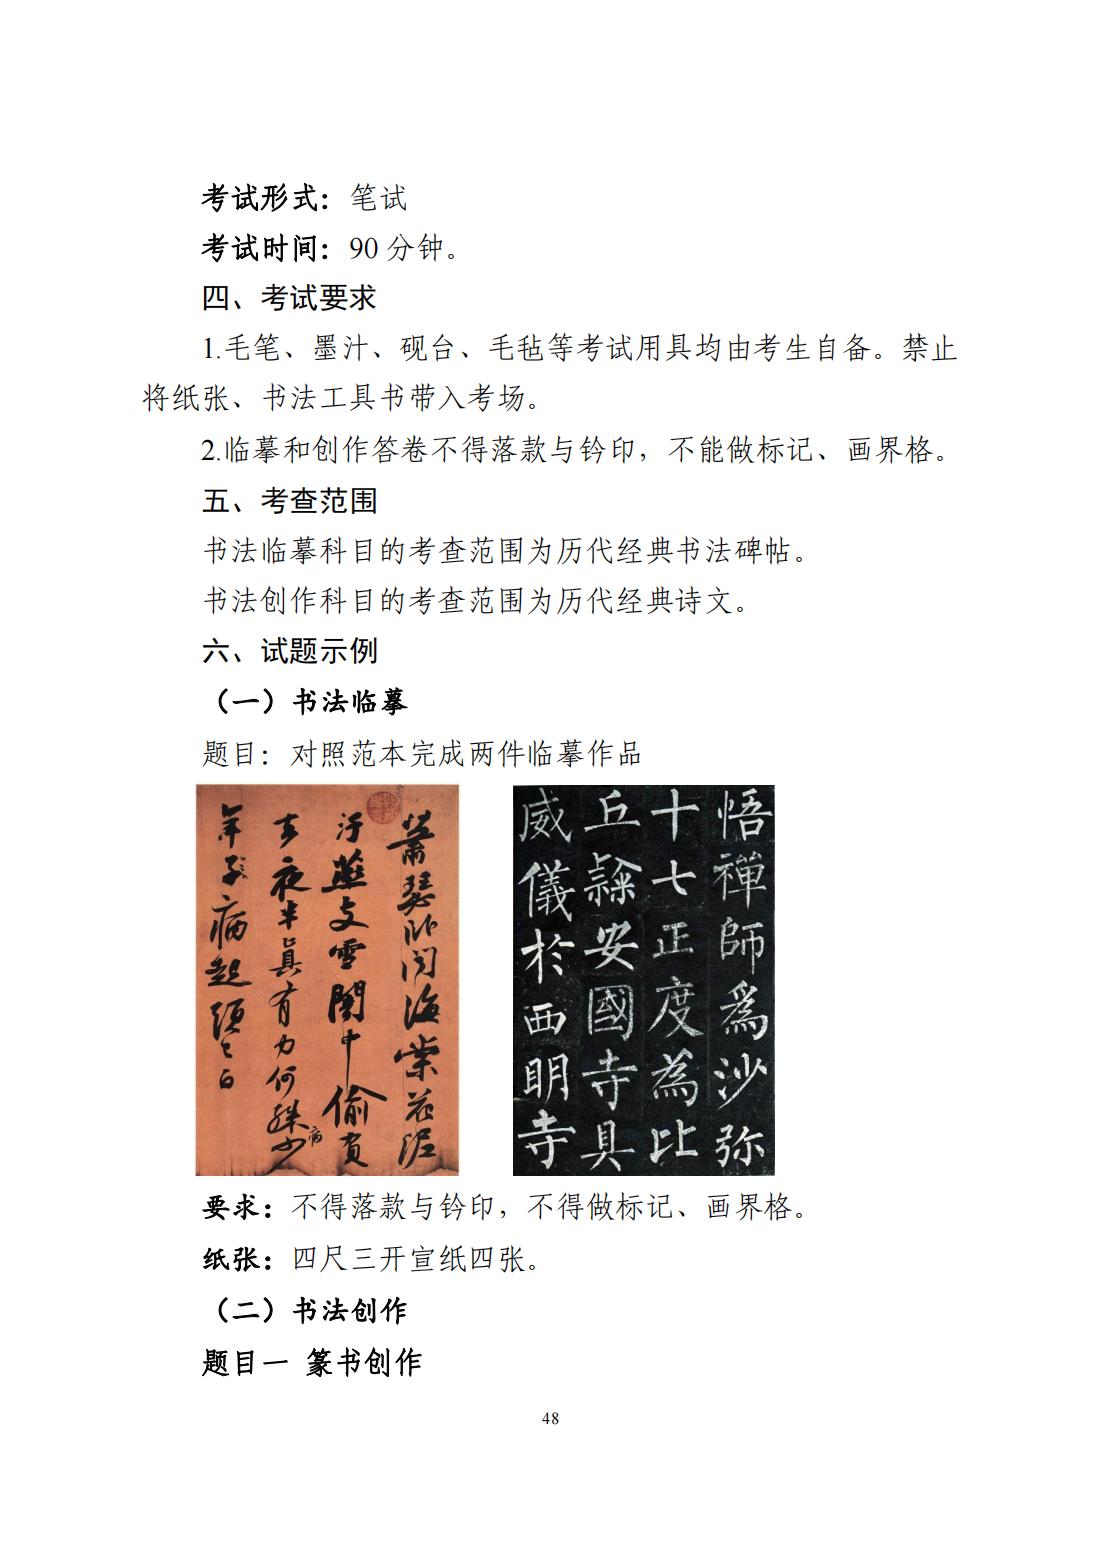 考试形式：笔试
考试时间：90 分钟。
四、考试要求
1.毛笔、墨汁、砚台、毛毡等考试用具均由考生自备。禁止
将纸张、书法工具书带入考场。
2.临摹和创作答卷不得落款与钤印，不能做标记、画界格。
五、考查范围
书法临摹科目的考查范围为历代经典书法碑帖。
书法创作科目的考查范围为历代经典诗文。
六、试题示例
（一）书法临摹
题目：对照范本完成两件临摹作品
蕭瑟卧聞海棠花泥
汙燕支雪闇中偷負
去夜半真有力何殊少
病
年子病起頭已白
悟禪師為沙弥
十七正度為比
丘隸安國寺具
威儀於西明寺
要求：不得落款与钤印，不得做标记、画界格。
纸张：四尺三开宣纸四张。
（二）书法创作
题目一 篆书创作
48